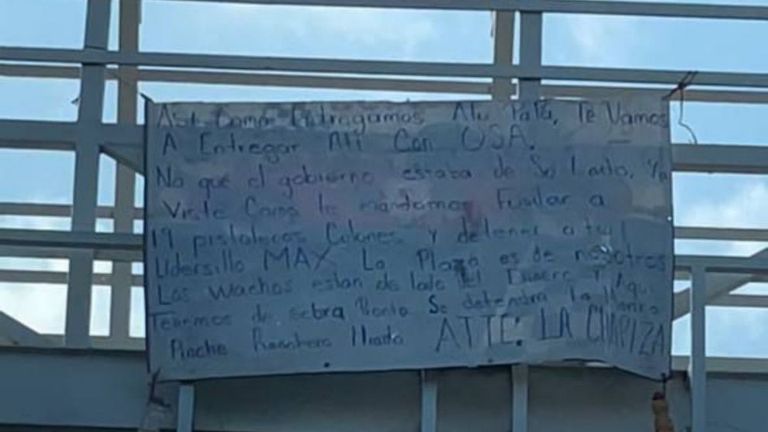 Asi Como Entregamos Atu Papá, Te Vamos
A Entregar Ati Con USA.
No que el gobierno estaba de Su Lado, Ya
Viste Como te mandamos Fusilar a
19 pistoleros Culones y detener a tu
Lidersillo MAY La Plaza es de nosotros
Los wachos estan de lado del Dinero Y Aqui
Tenemos de sobra Se defendera la
Pinche Ranchero ATTE: LA CHAPIZA